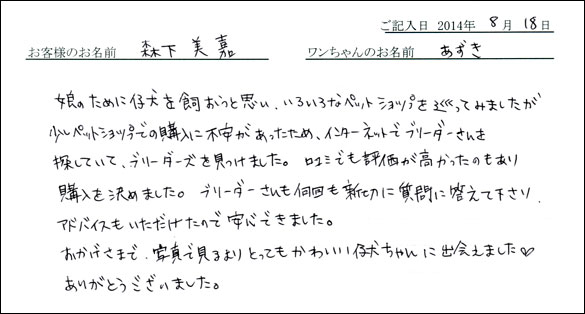 ご記入日 2014年 8月 18日
お客様のお名前 森下 美嘉 ワンちゃんのお名前 あずき
娘のために仔犬を飼おうと思い、いろいろなペットショップを巡ってみましたが
少しペットショップでの購入に不安があったため、インターネットでブリーダーさんを
探していて、ブリーダーズを見つけました。口コミでも評価が高かったのもあり
購入を決めました。ブリーダーさんも何回も親切に質問に答えて下さり、
アドバイスもいただけたので安心できました。
おかげさまで、写真で見るよりとってもかわいい仔犬ちゃんに出会えました♡
ありがとうございました。